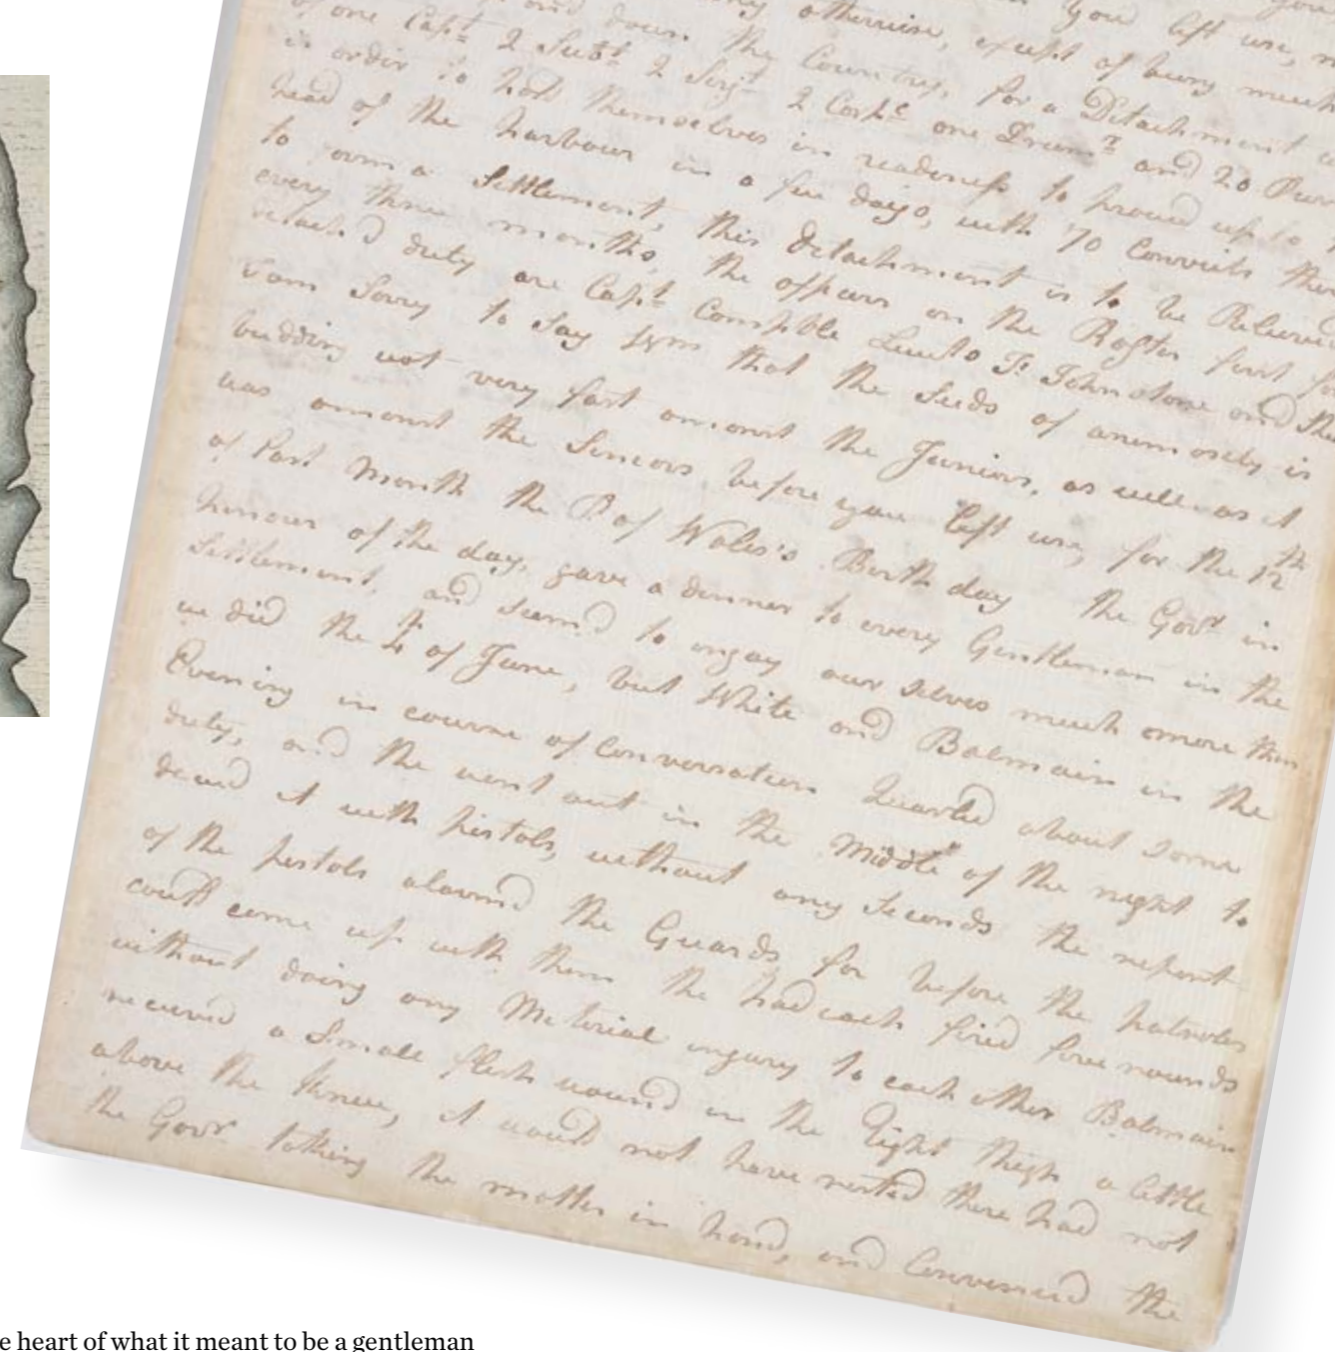 you
otherwise, except of being much
you left us,
and down the Country, for a Detachment
of one Capt. 2 Subt. 2 Serjt. 2 Corpls. one Drumr. and 20
in order to hold themselves in readiness to proceed up to
head of the harbour in a few days, with 70 Convicts
to form a Settlement, this detachment is to be
every three months, the officers on the Roster first for
duty are Capt. Lieuts. J. Johnstone and
I am Sorry to Say Wm that the Seeds of animosety is
budding not very fast amonst the Juniors, as well as it
was amonst the Seniors before you left us, for the 12th
of Last Month the P. of Wales's Birth day the Govr. in
honour of the day, gave a dinner to every Gentleman in the
Settlement, and seem'd to ourselves much more then
we did the 4th of June, but White and Balmain in the
Evening in course of Conversation about some
duty, and the went out in the Middle of the night to
it with pistols, without any Seconds the report
of the pistols alarm'd the Guards for before the
could come up with them the had each fired five rounds
without doing any Meterial ingury to each other Balmain
received a Small flesh wound in the right thigh a little
above the Knee, it would not have rested there had not
the Govr. taking the matter in hand, and Convinced the
e heart of what it meant to be a gentleman